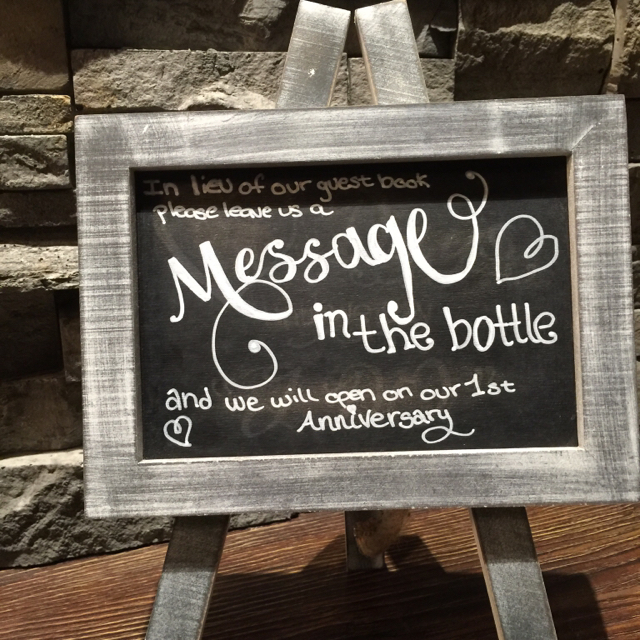 In lieu of our guest book
please leave us a
Message
in the bottle
and we will open on our 1st
Anniversary